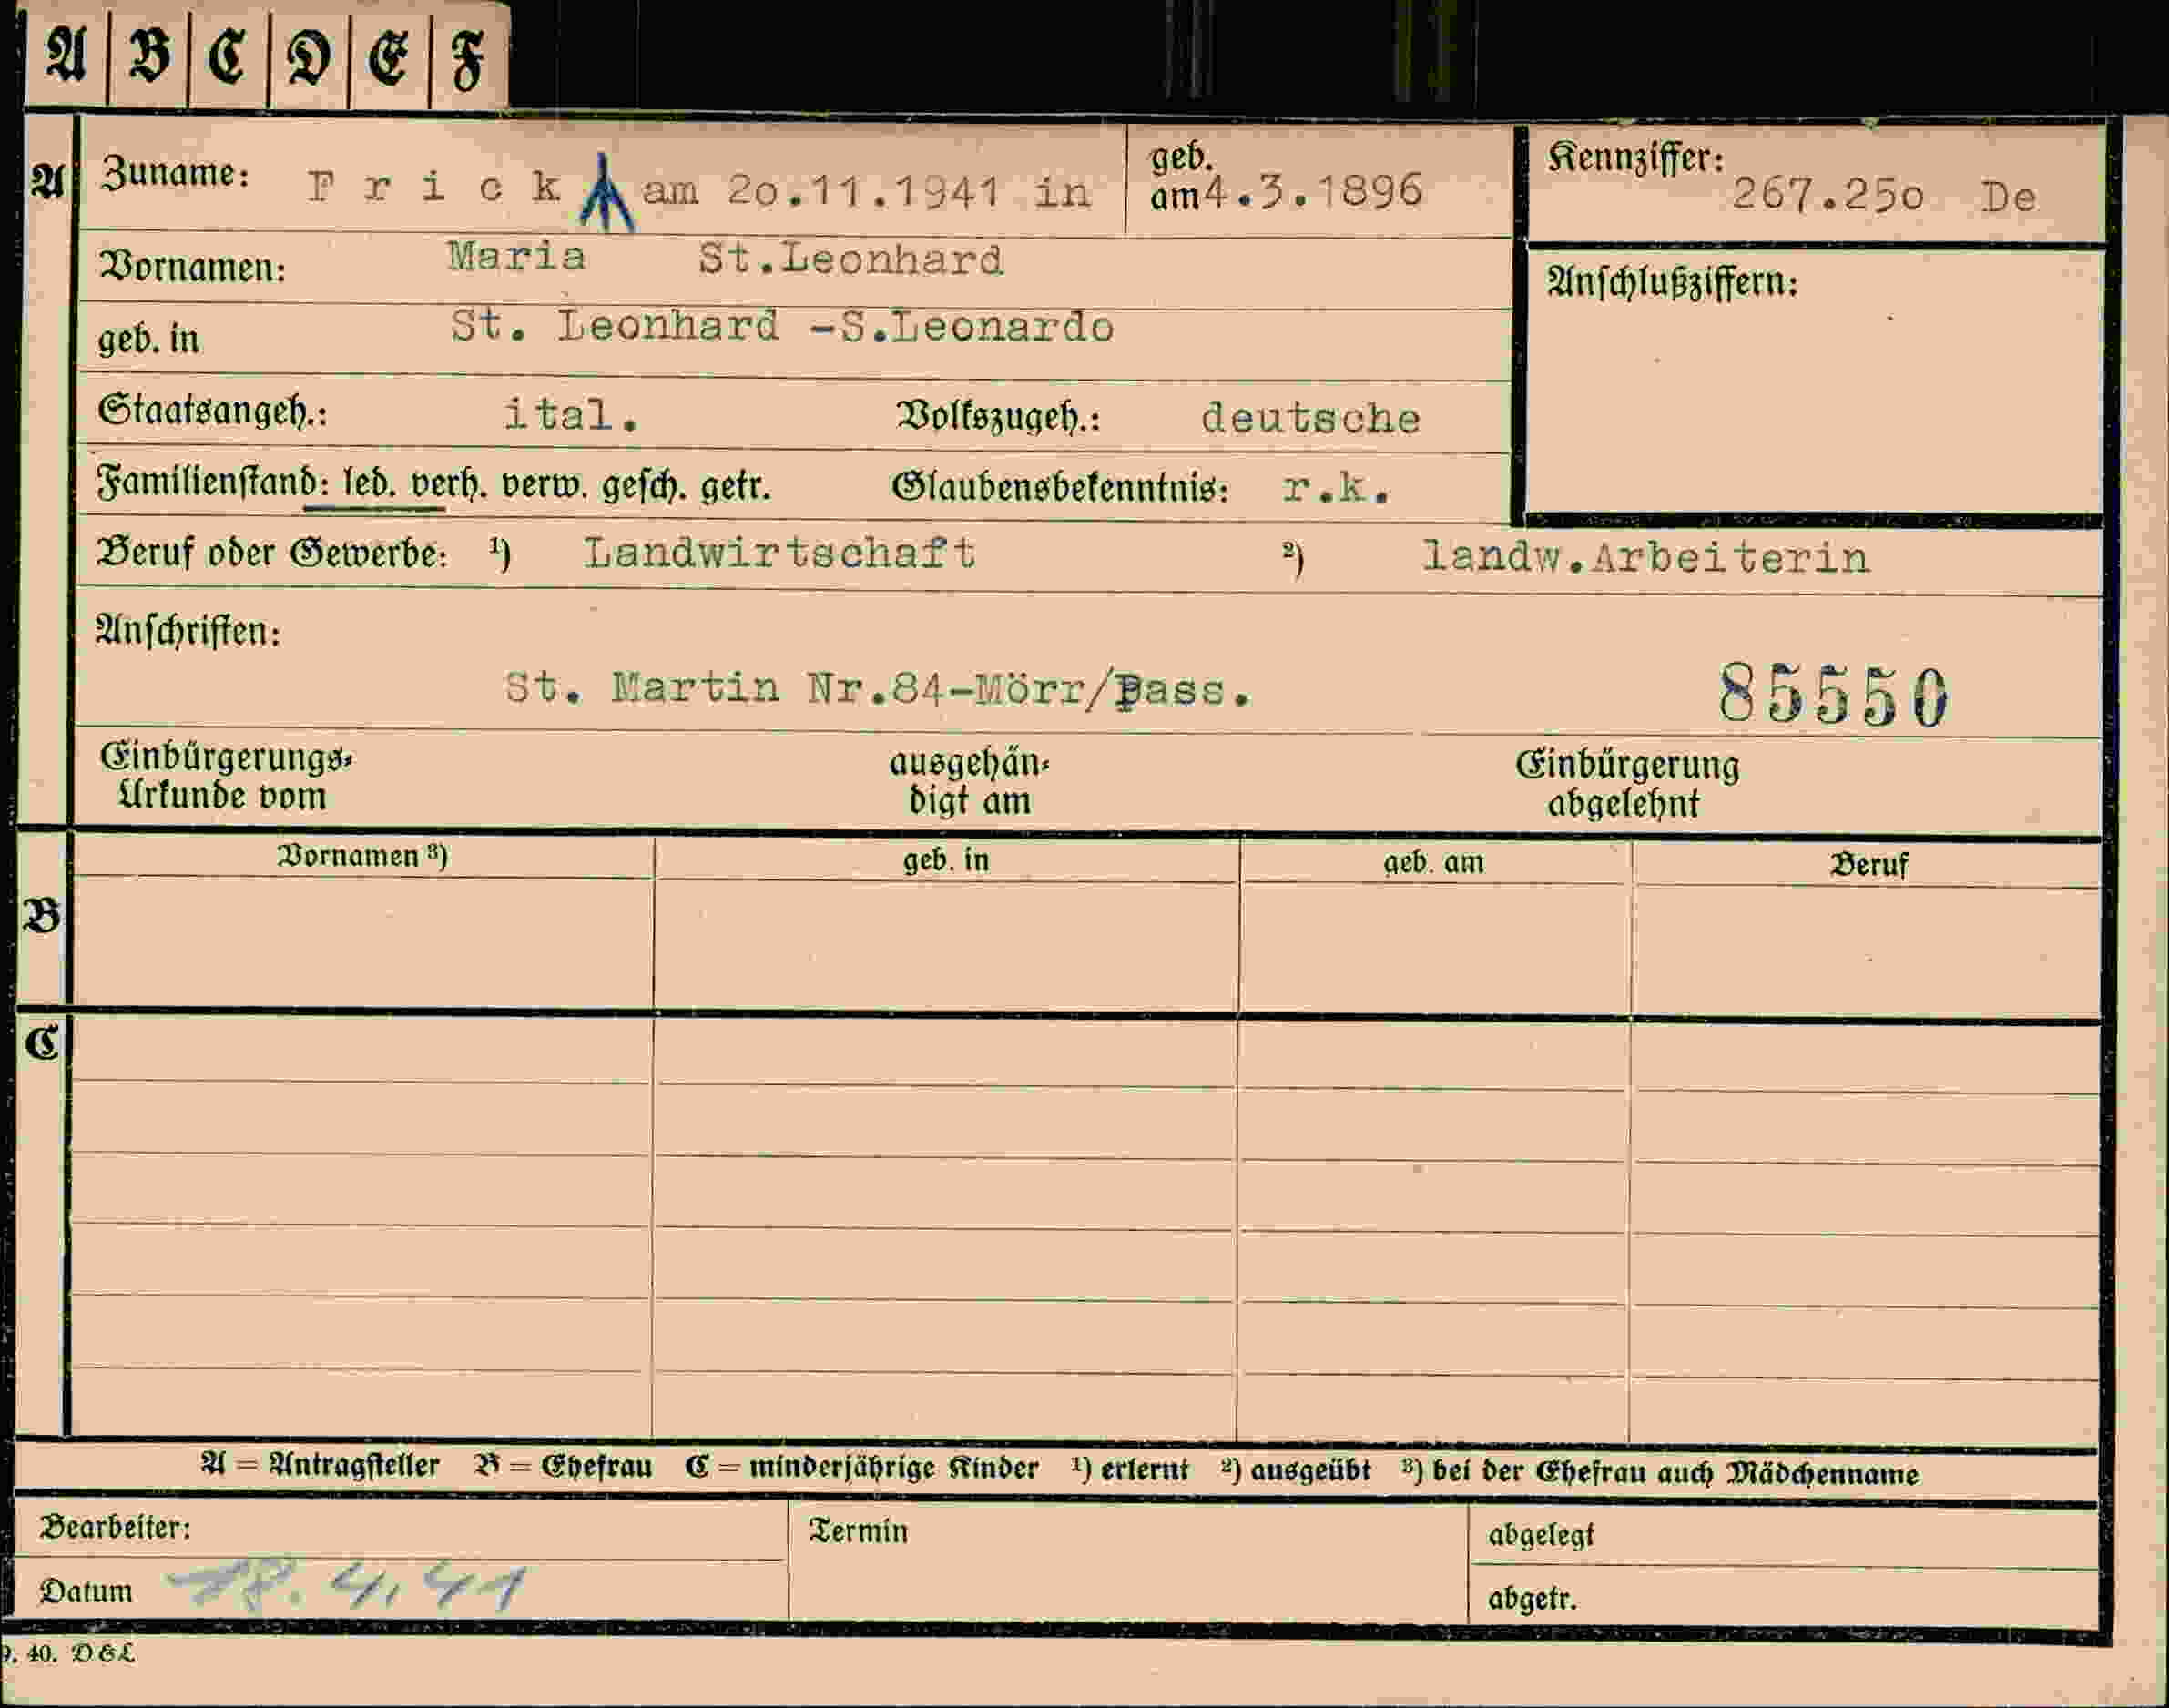 A B C D E F
A Zuname: F r i c k am 20.11.1941 in geb. am 4.3.1896 Kennziffer: 267.250 De
Vornamen: Maria St.Leonhard
Anschlußziffern:
geb. in St. Leonhard -S.Leonardo
Staatsangeh.: ital. Volkszugeh.: deutsche
Familienstand: led. verh. verw. gesch. getr. Glaubensbekenntnis: r.k.
Beruf oder Gewerbe: ¹) Landwirtschaft ²) landw.Arbeiterin
Anschriften:
St. Martin Nr.84-Mörr/Pass. 85550
Einbürgerungs- ausgehän- Einbürgerung
Urkunde vom digt am abgelehnt
Vornamen ³) geb. in geb. am Beruf
B
C
A = Antragsteller B = Ehefrau C = minderjährige Kinder ¹) erlernt ²) ausgeübt ³) bei der Ehefrau auch Mädchenname
Bearbeiter: Termin abgelegt
Datum 18.4.41 abgetr.
9. 40. D&L